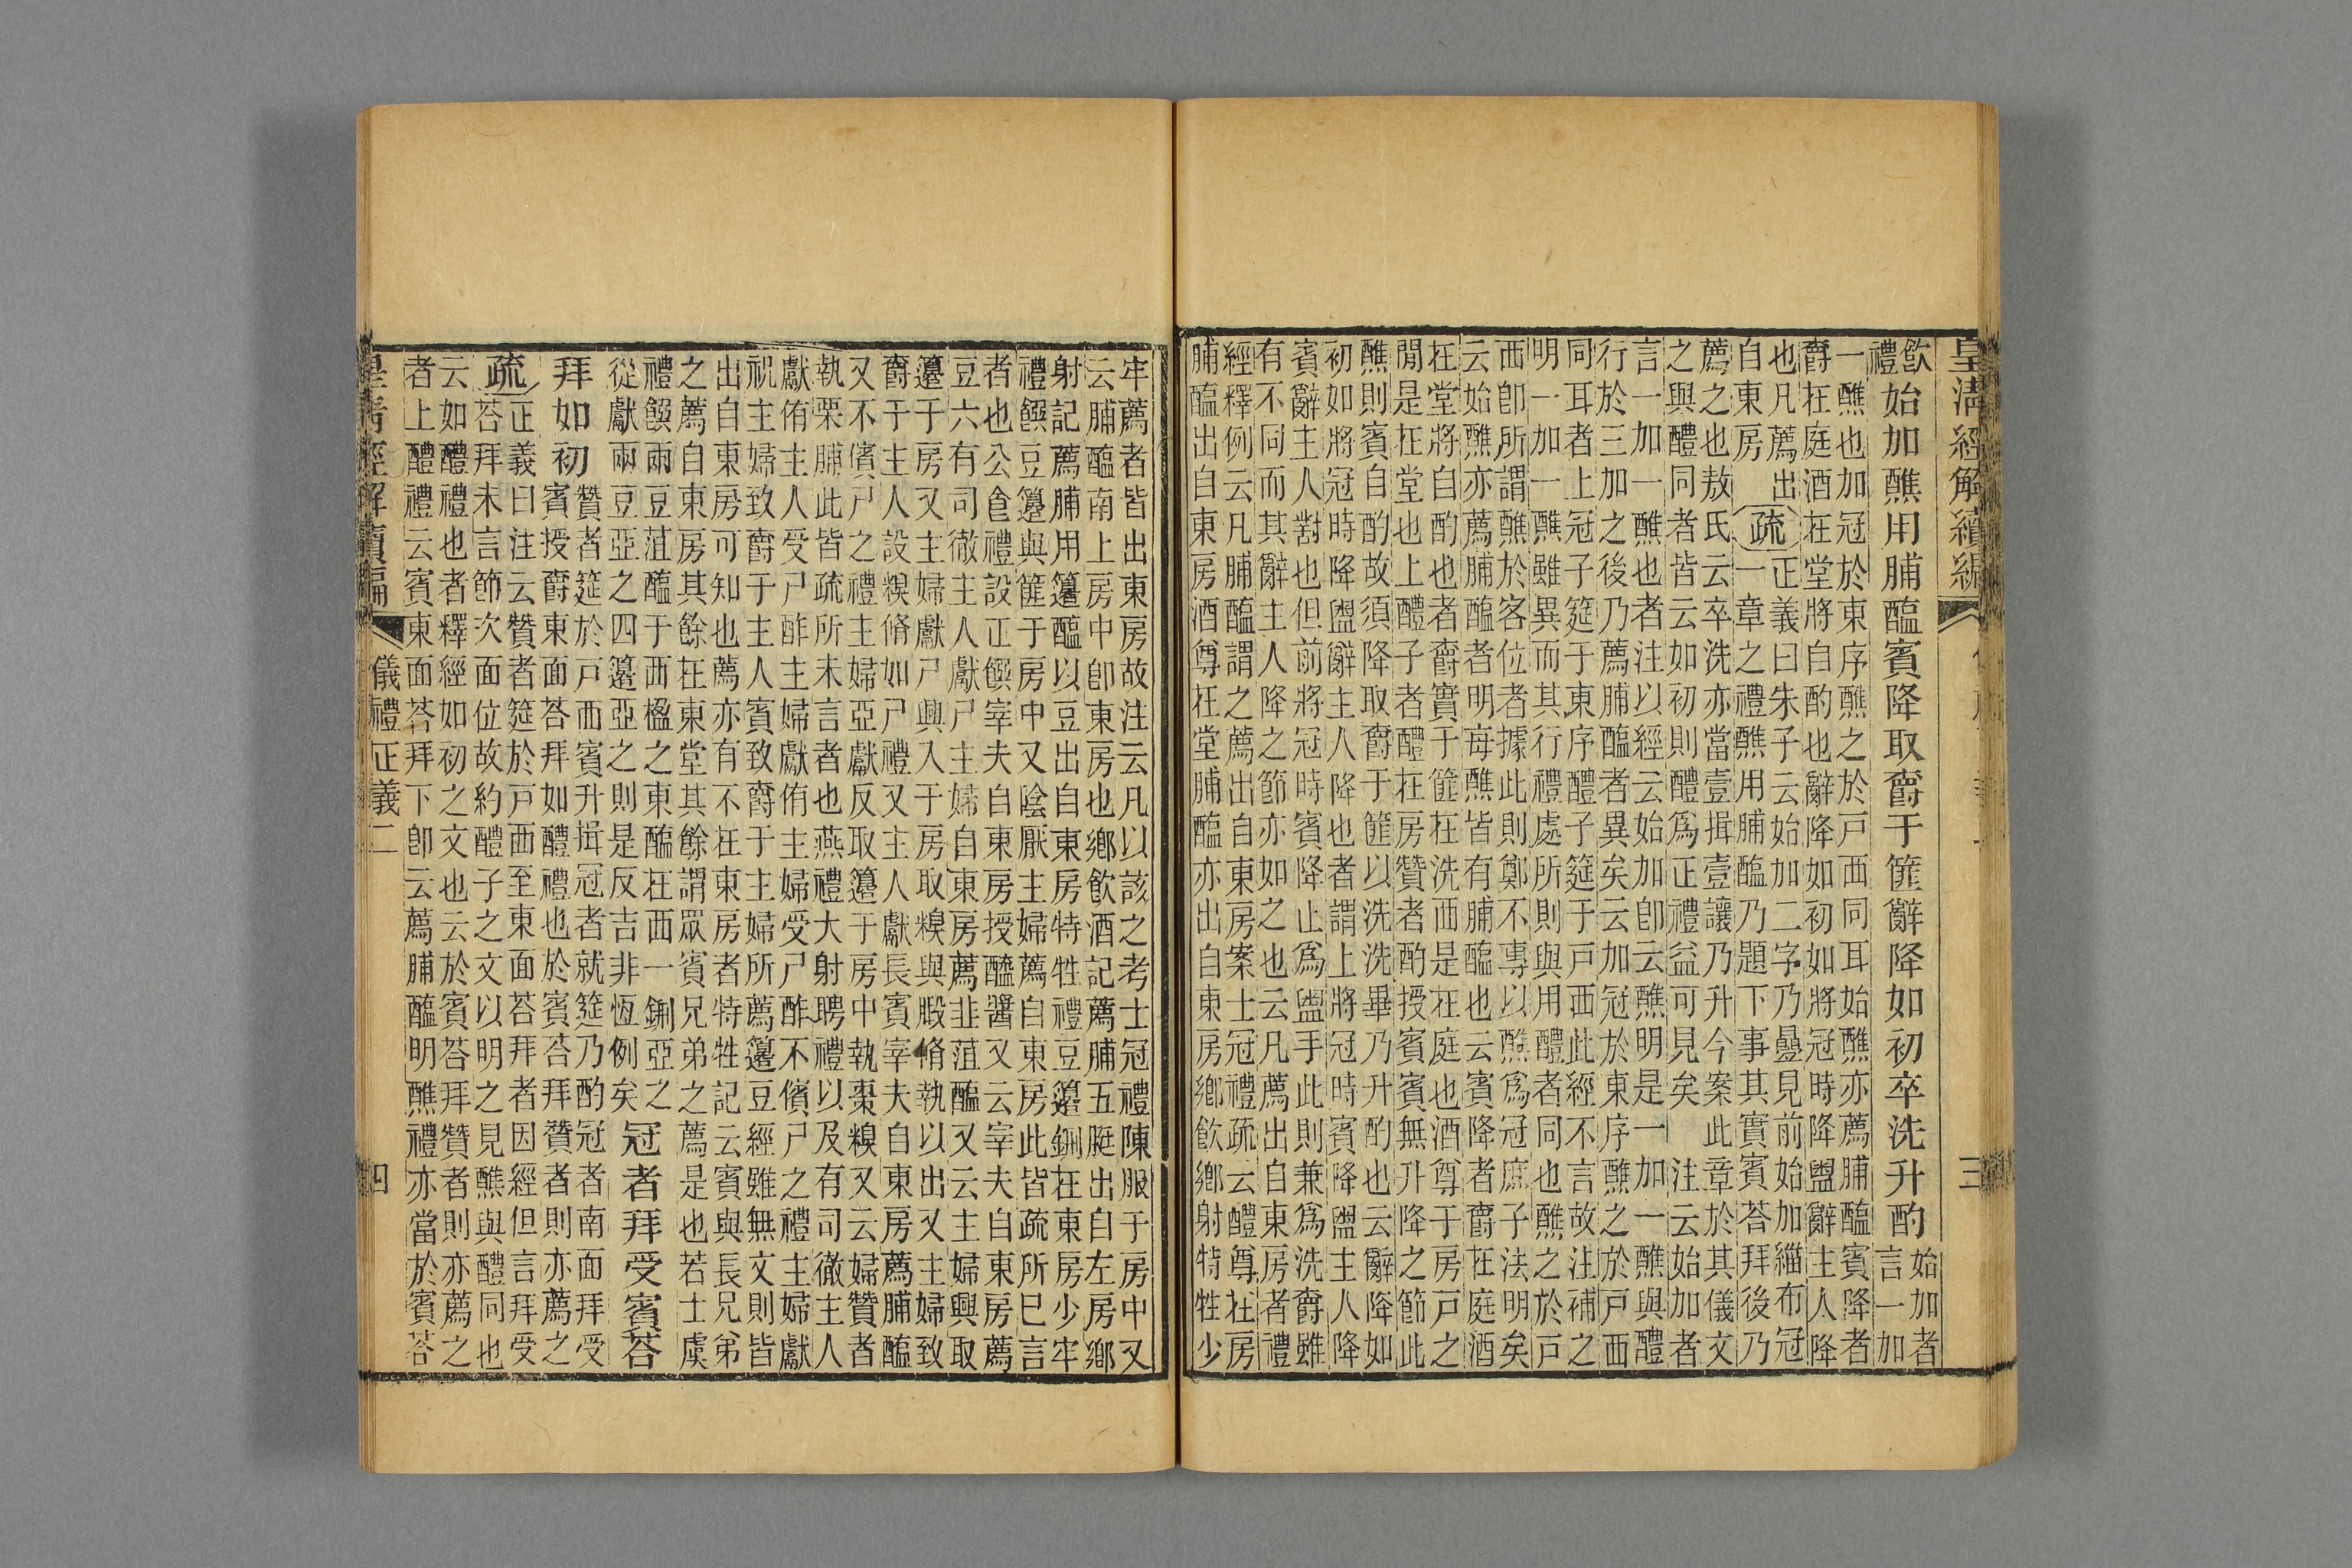 皇清經解續編
三
飲
禮
始加醮用脯醢賓降取爵于篚辭降如初卒洗升酌
始加者
言一加
一醮也加冠於東序醮之於戶西同耳始醮亦薦脯醢賓降者
爵在庭酒在堂將自酌也辭降如初如將冠時降盥辭主人降
也凡薦出
自東房
疏
正義曰朱子云始加二字乃疊見前始加緇布冠
一章之禮醮用脯醢乃題下事其實賓荅拜後乃
薦之也敖氏云卒洗亦當壹揖壹讓乃升今案此章於其儀文
之與醴同者皆云如初則醴爲正禮益可見矣 注云始加者
言一加一醮也者注以經云始加卽云醮明是一加一醮與醴
行於三加之後乃薦脯醢者異矣云加冠於東序醮之於戶西
同耳者上冠子筵于東序醴子筵于戶西此經不言故注補之
明一加一醮雖異而其行禮處所則與用醴者同也醮之於戶
西卽所謂醮於客位者據此則鄭不專以醮爲冠庶子法明矣
云始醮亦薦脯醢者明每醮皆有脯醢也云賓降者爵在庭酒
在堂將自酌也者爵實于篚在洗西是在庭也酒尊于房戶之
閒是在堂也上醴子者醴在房贊者酌授賓賓無升降之節此
醮則賓自酌故須降取爵于篚以洗洗畢乃升酌也云辭降如
初如將冠時降盥辭主人降也者謂上將冠時賓降盥主人降
賓辭主人對也但前將冠時賓降止爲盥手此則兼爲洗爵雖
有不同而其辭主人降之節亦如之也云凡薦出自東房者禮
經釋例云凡脯醢謂之薦出自東房案士冠禮疏云醴尊在房
脯醢出自東房酒尊在堂脯醢亦出自東房鄉飲鄉射特牲少
牢薦者皆出東房故注云凡以該之考士冠禮陳服于房中又
云脯醢南上房中卽東房也鄉飲酒記薦脯五脡出自左房鄉
射記薦脯用籩醢以豆出自東房特牲禮豆籩鉶在東房少牢
禮饌豆籩與篚于房中又陰厭主婦薦自東房此皆疏所已言
者也公食禮設正饌宰夫自東房授醯醬又云宰夫自東房薦
豆六有司徹主人獻尸主婦自東房薦韭菹醢又云主婦興取
籩于房又主婦獻尸興入于房取糗與腶脩執以出又主婦致
爵于主人設糗脩如尸禮又主人獻長賓宰夫自東房薦脯醢
又不儐尸之禮主婦亞獻反取籩于房中執棗糗又云婦贊者
執栗脯此皆疏所未言者也燕禮大射聘禮以及有司徹主人
獻侑主人受尸酢主婦獻侑主婦受尸酢不儐尸之禮主婦獻
祝主婦致爵于主人賓致爵于主婦所薦籩豆經雖無文則皆
出自東房可知也薦亦有不在東房者特牲記云賓與長兄弟
之薦自東房其餘在東堂其餘謂眾賓兄弟之薦是也若士虞
禮饌兩豆菹醢于西楹之東醢在西一鉶亞之
從獻兩豆亞之四籩亞之則是反吉非恆例矣
冠者拜受賓荅
拜如初
贊者筵於戶而賓升揖冠者就筵乃酌冠者南面拜受
賓授爵東面荅拜如醴禮也於賓荅拜贊者則亦薦之
疏
正義曰注云贊者筵於戶西至東面荅拜者因經但言拜受
荅拜未言節次面位故約醴子之文以明之見醮與醴同也
云如醴禮也者釋經如初之文也云於賓荅拜贊者則亦薦之
者上醴禮云賓東面荅拜下卽云薦脯醢明醮禮亦當於賓荅
皇清經解續編
儀禮正義二
四